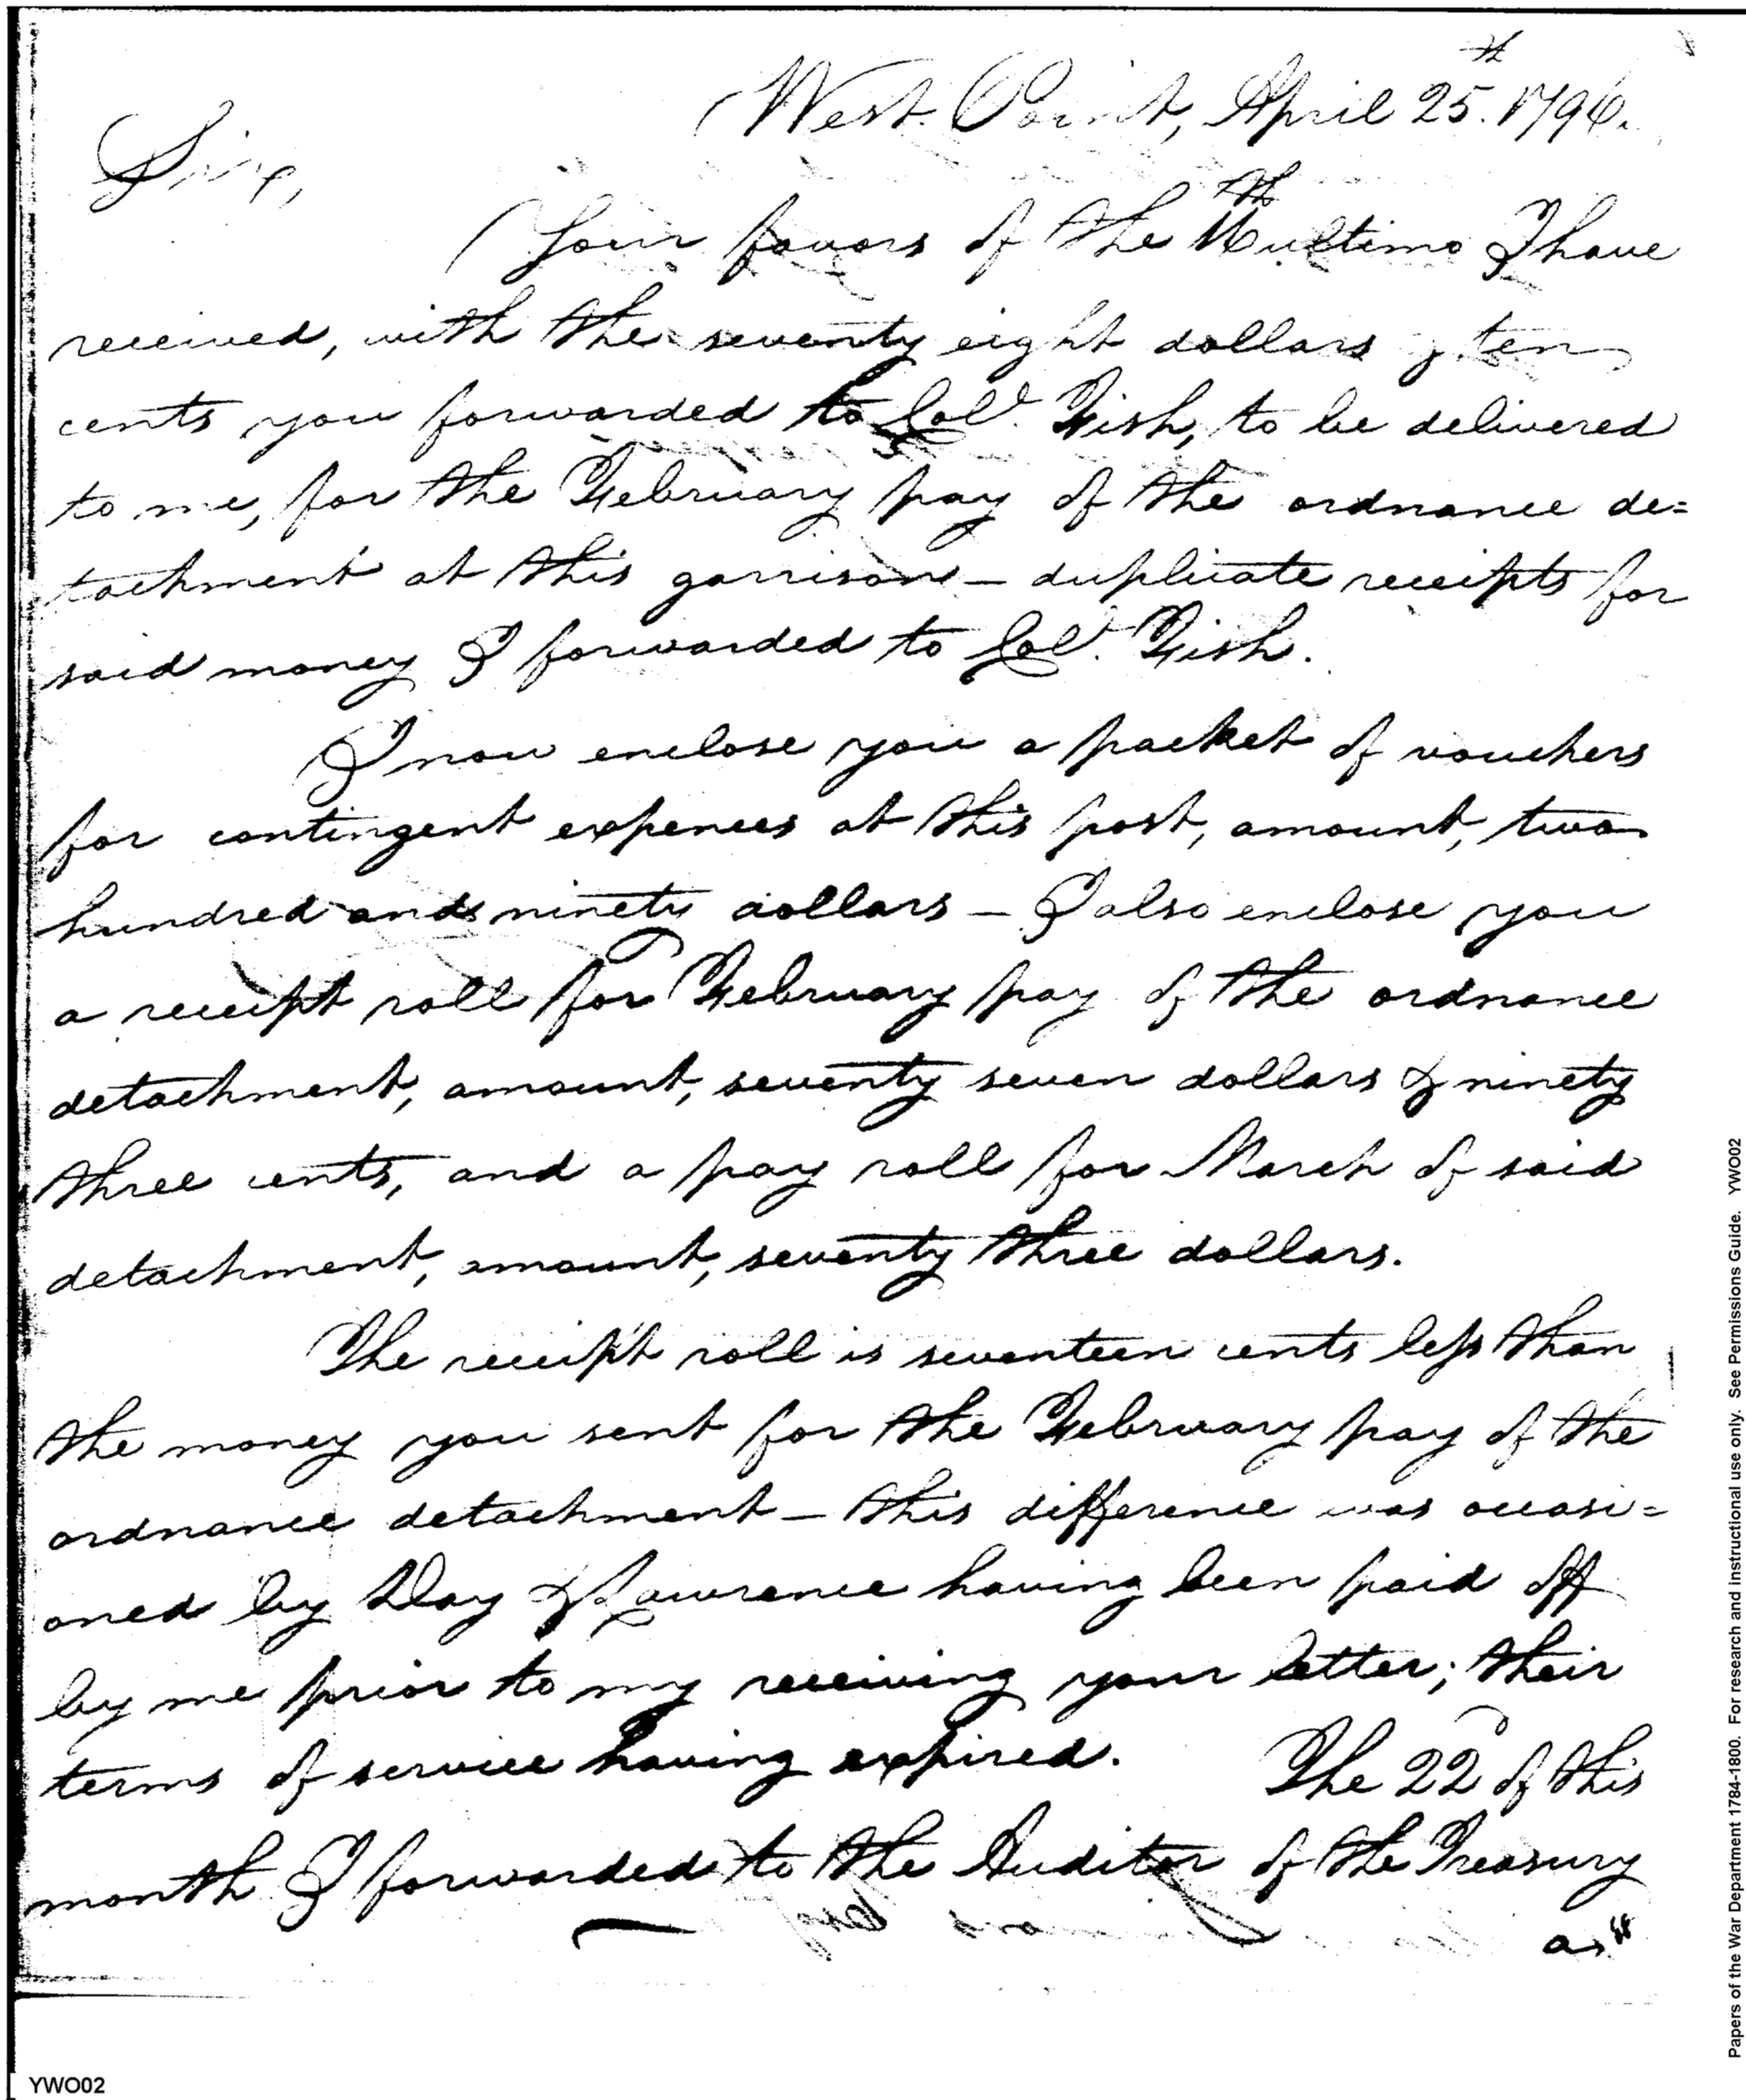 West Point, April 25.th 1796.
Sir,
Your favors of the th ultimo I have
received, with the seventy eight dollars & ten
cents you forwarded to Col.o Fish, to be delivered
to me, for the February pay of the ordnance de=
tachment at this garrison – duplicate receipts for
said money I forwarded to Col.o Fish.
I now enclose you a packet of vouchers
for contingent expences at this post, amount, two
hundred and ninety dollars – I also enclose you
a receipt roll for February pay of the ordnance
detachment, amount, seventy seven dollars & ninety
three cents, and a pay roll for March of said
detachment, amount, seventy three dollars.
The receipt roll is seventeen cents less than
the money you sent for the February pay of the
ordnance detachment – this difference was occasi=
oned by Day & Lawrence having been paid off
by me prior to my receiving your letter; their
terms of service having expired. The 22d of this
month I forwarded to the Auditor of the Treasury
a
YWO02
Papers of the War Department 1784-1800. For research and instructional use only. See Permissions Guide. YWO02